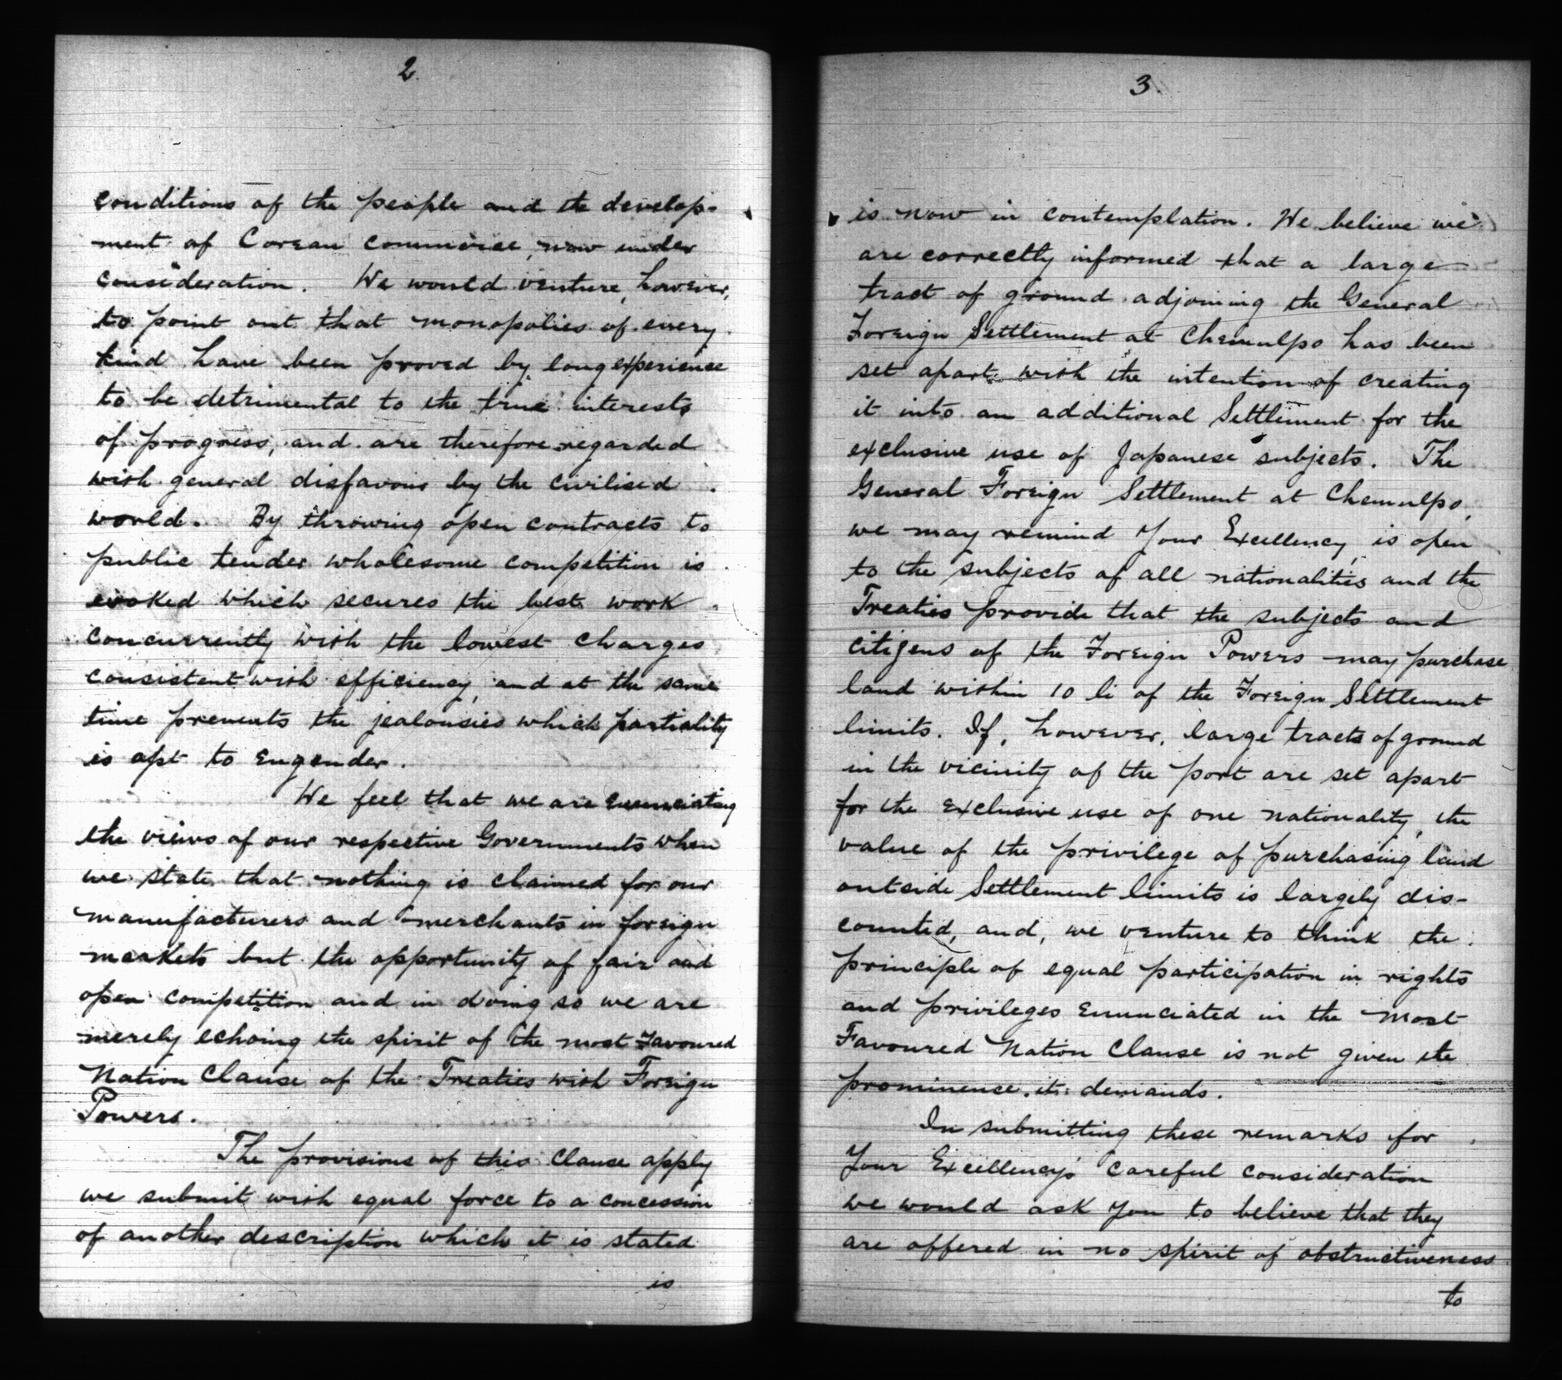 2
conditions of the people and the develop-
ment of Corean commerce, now under
consideration. We would venture, however,
to point out that monopolies of every
kind have been proved by long experience
to be detrimental to the true interests
of progress, and are therefore regarded
with general disfavour by the civilised
world. By throwing open contracts to
public tender wholesome competition is
evoked which secures the best work
concurrently with the lowest charges
consistent with efficiency, and at the same
time prevents the jealousies which partiality
is apt to engender.
We feel that we are enunciating
the views of our respective Governments when
we state that nothing is claimed for our
manufacturers and merchants in foreign
markets but the opportunity of fair and
open competition and in doing so we are
merely echoing the spirit of the most Favoured
Nation Clause of the Treaties with Foreign
Powers.
The provisions of this Clause apply
we submit with equal force to a concession
of another description which it is stated
is
3.
is now in contemplation. We believe we
are correctly informed that a large
tract of ground adjoining the General
Foreign Settlement at Chemulpo has been
set apart with the intention of creating
it into an additional Settlement for the
exclusive use of Japanese subjects. The
General Foreign Settlement at Chemulpo,
we may remind Your Excellency, is open
to the subjects of all nationalities and the
Treaties provide that the subjects and
citizens of the Foreign Powers may purchase
land within 10 li of the Foreign Settlement
limits. If, however, large tracts of ground
in the vicinity of the port are set apart
for the exclusive use of one nationality, the
value of the privilege of purchasing land
outside Settlement limits is largely dis-
counted, and, we venture to think the
principle of equal participation in rights
and privileges enunciated in the Most
Favoured Nation Clause is not given the
prominence it demands.
In submitting these remarks for
Your Excellency's careful consideration
we would ask you to believe that they
are offered in no spirit of obstructiveness
to